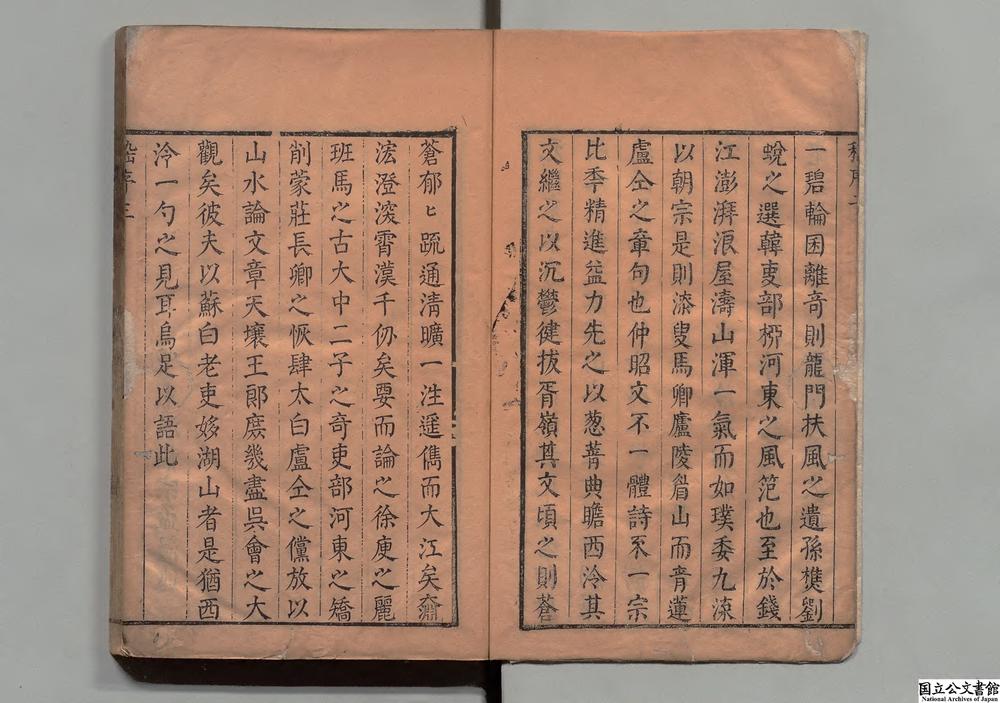 一碧輪囷離奇則龍門扶風之遺孫樵劉
蛻之選韓吏部栁河東之風笵也至於錢
江澎湃浪屋濤山渾一氣而如璞委九淙
以朝宗是則漆叟馬卿廬陵眉山而青蓮
盧仝之章句也仲昭文不一體詩不一宗
比季精進益力先之以葱蒨典瞻西泠其
文繼之以沉鬱徤拔胥嶺其文頃之則蒼
蒼郁〻疏通清曠一泩遥儁而大江矣奫
浤澄滚霄漢千仞矣要而論之徐庾之麗
班馬之古大中二子之奇吏部河東之矯
削蒙莊長卿之恢肆太白盧仝之儻放以
山水論文章天壤王郎庶幾盡呉會之大
觀矣彼夫以蘇白老吏姼湖山者是猶西
泠一勺之見耳烏足以語此
嵇序三
国立公文書館
National Archives of Japan